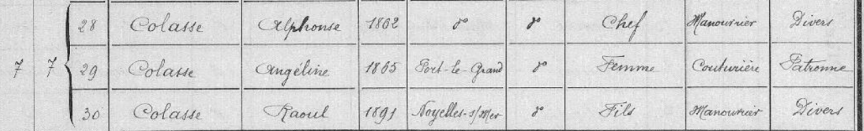 28 Colasse Alphonse 1862 d° d° Chef Manouvrier Divers
7 7 29 Colasse Angéline 1865 Port-le-Grand d° Femme Couturière Patronne
30 Colasse Raoul 1891 Noyelles-s/Mer d° Fils Manouvrier Divers